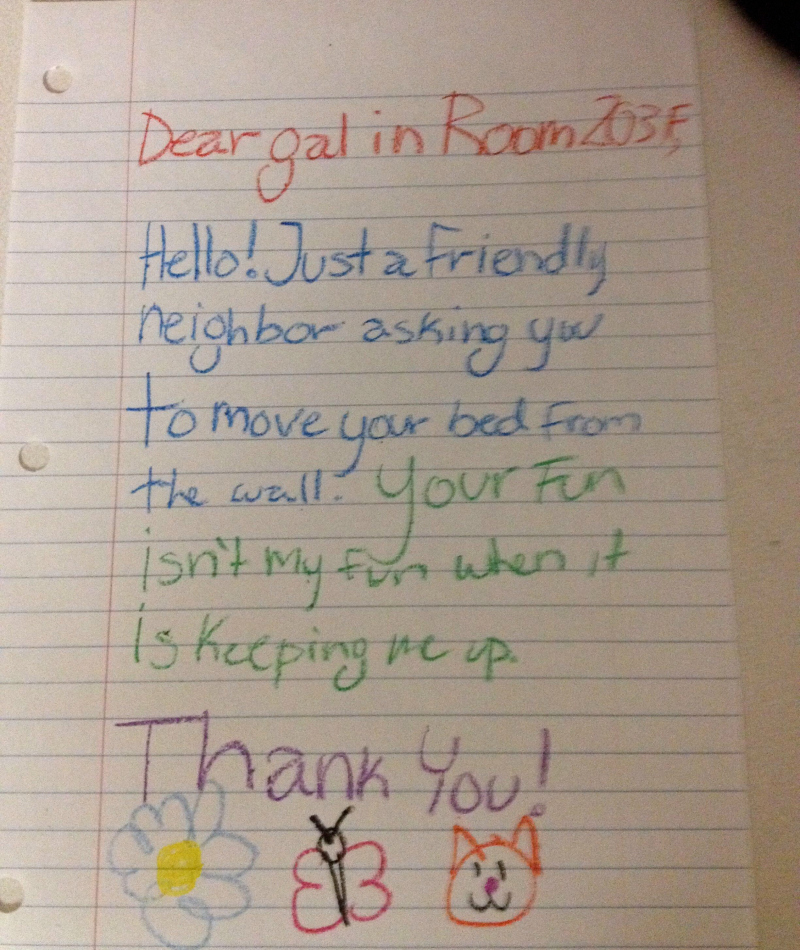 Dear gal in Room 203F,
Hello! Just a friendly
neighbor asking you
to move your bed from
the wall. Your Fun
isn't my fun when it
is keeping me up.
Thank You!